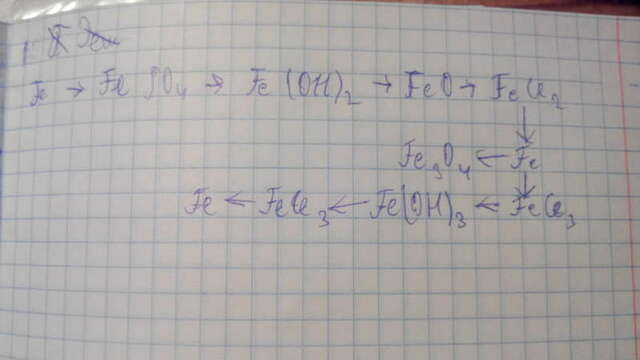 Fe → FeSO4 → Fe(OH)2 → FeO → FeCl2
↓
Fe3O4 ← Fe
↓
Fe ← FeCl3 ← Fe(OH)3 ← FeCl3